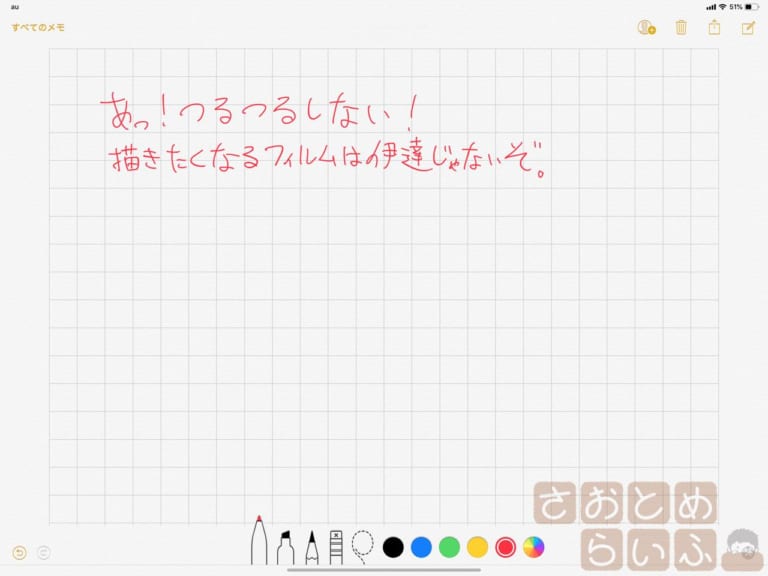 au
51%
すべてのメモ
あっ！つるつるしない！
描きたくなるフィルムは伊達じゃないぞ。
さおとめ
らいふ